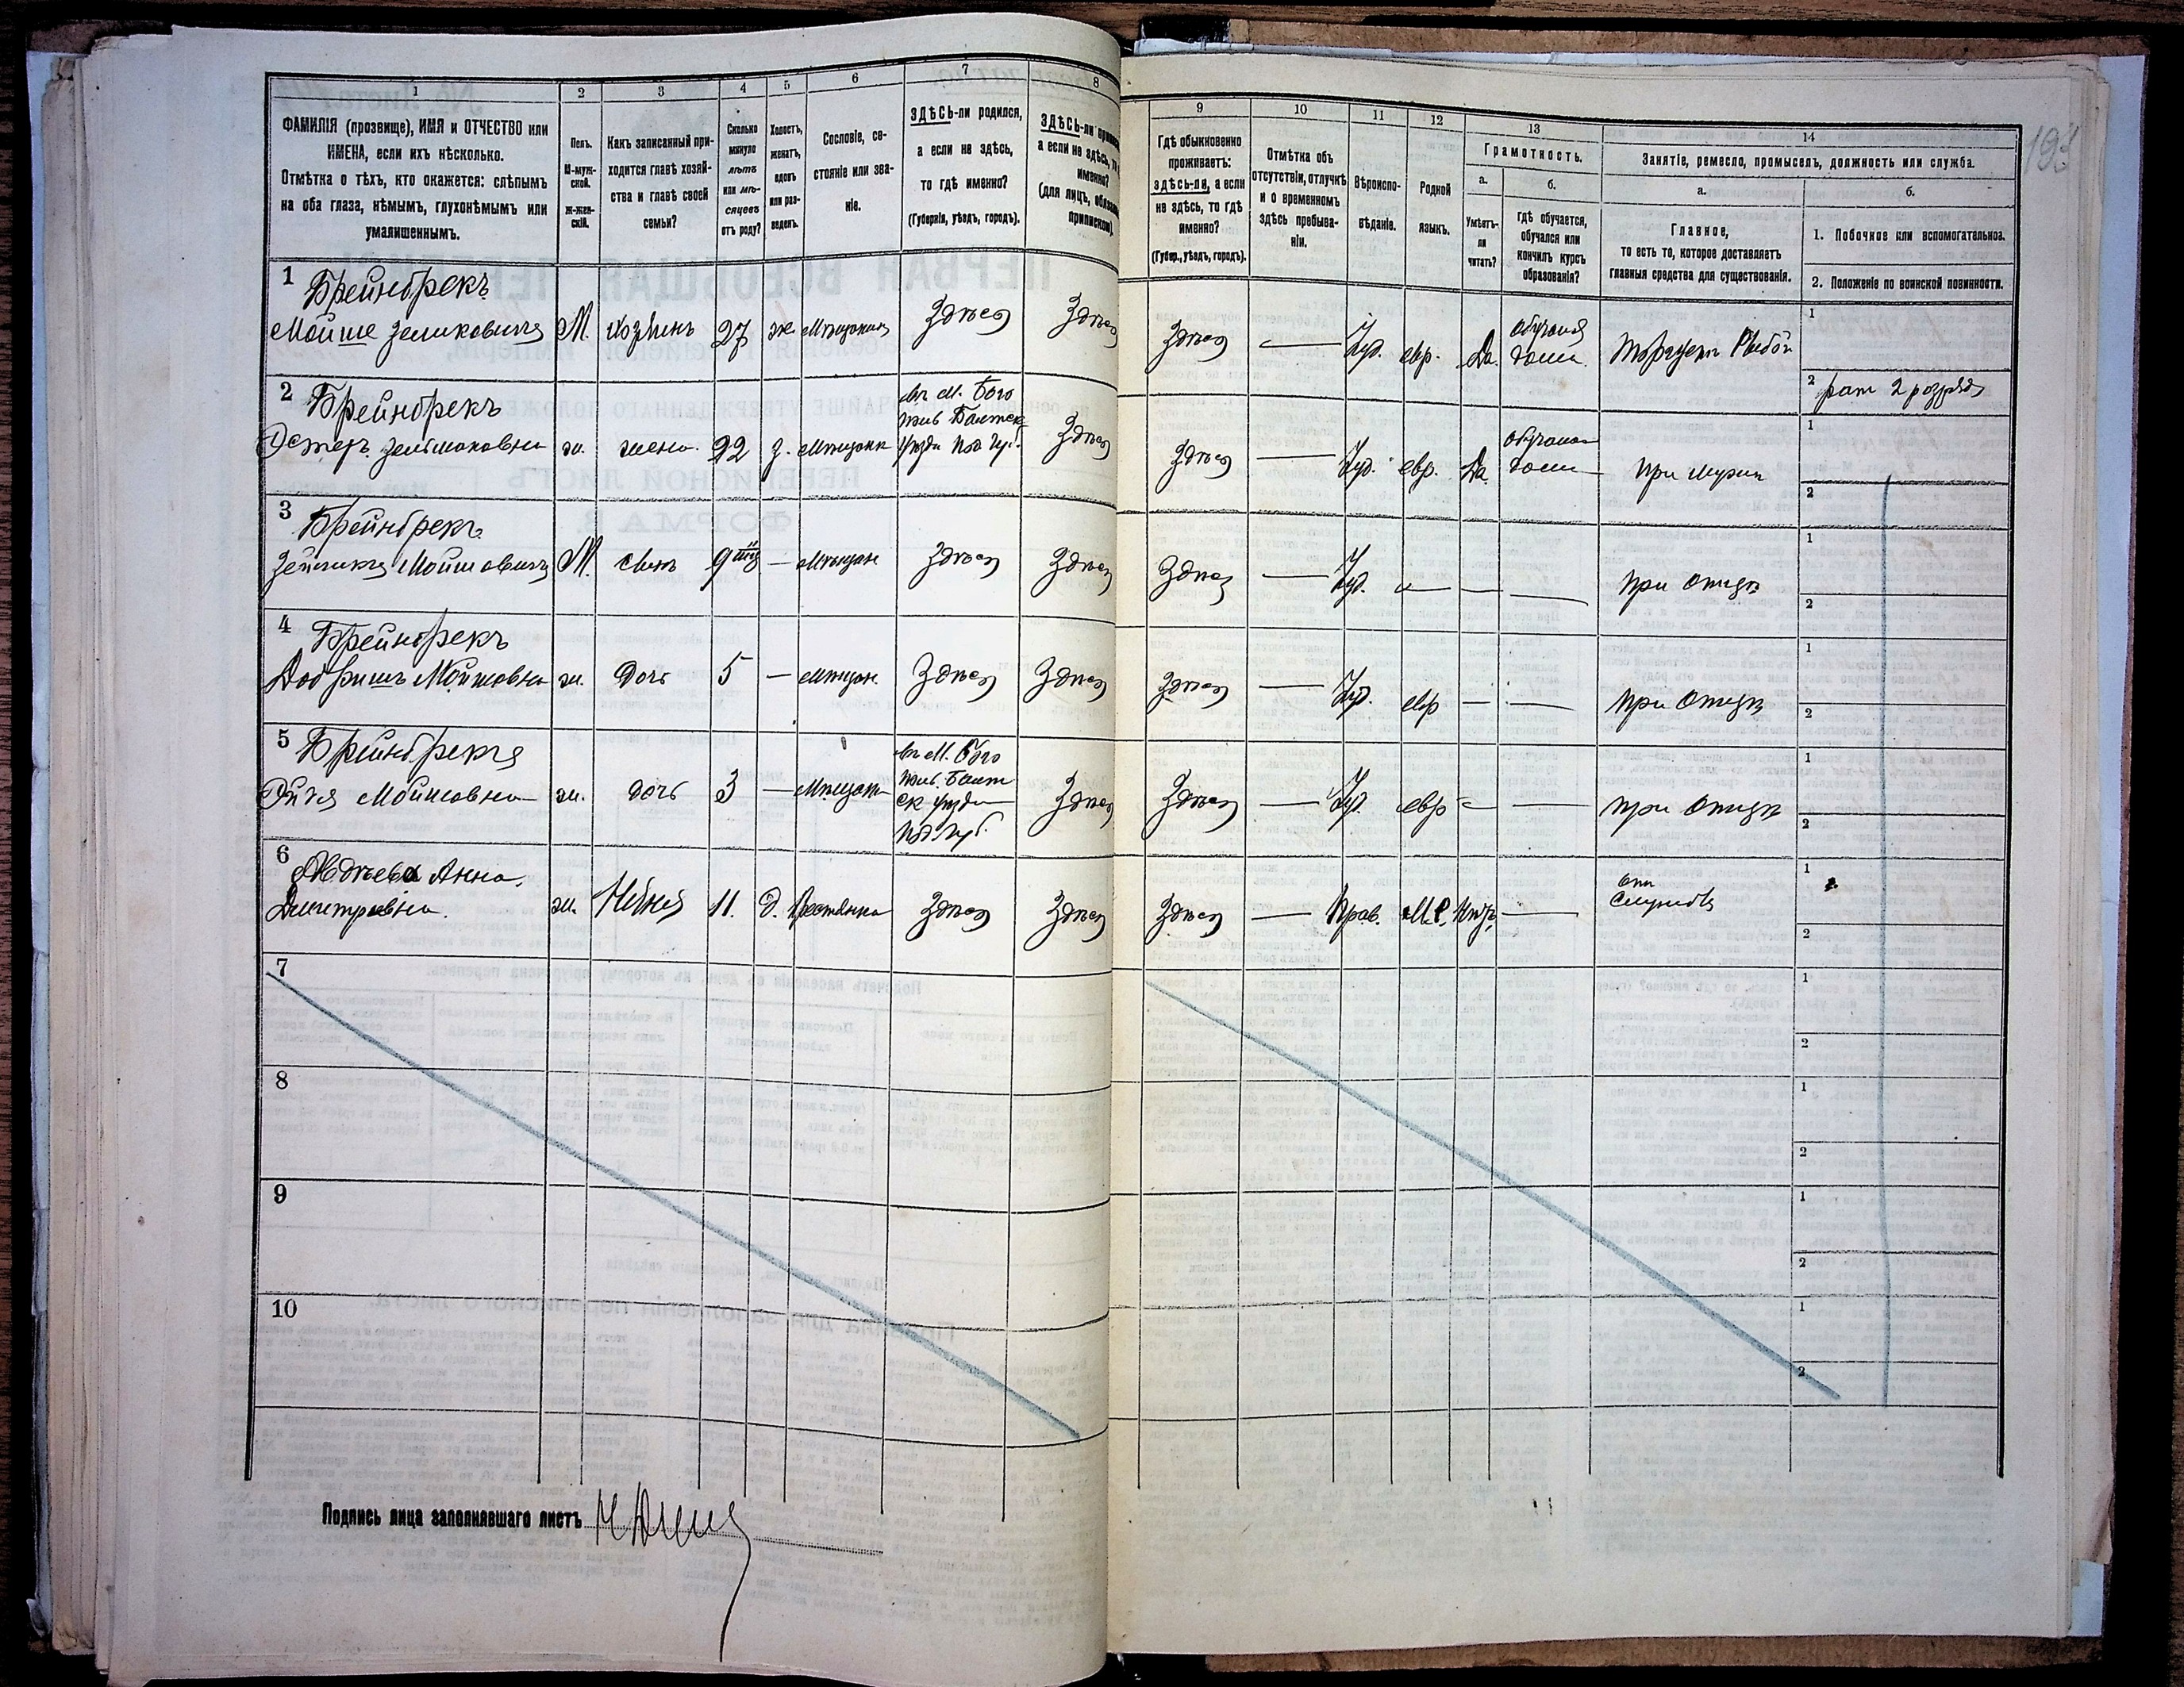 1 2 3 4 5 6 7 8
ФАМИЛІЯ (прозвище), ИМЯ и ОТЧЕСТВО или
ИМЕНА, если ихъ нѣсколько.
Отмѣтка о тѣхъ, кто окажется: слѣпымъ
на оба глаза, нѣмымъ, глухонѣмымъ или
умалишеннымъ.
Полъ.
М-муж-
ской.
Ж-жен-
скій.
Какъ записанный при-
ходится главѣ хозяй-
ства и главѣ своей
семьи?
Сколько
минуло
лѣтъ
или мѣ-
сяцевъ
отъ роду?
Холостъ,
женатъ,
вдовъ
или раз-
веденъ.
Сословіе, со-
стояніе или зва-
ніе.
ЗДѢСЬ-ли родился,
а если не здѣсь,
то гдѣ именно?
(Губернія, уѣздъ, городъ).
ЗДѢСЬ-ли
а если не здѣсь,
именно?
(для лицъ,
1 Брейнбрекъ
Мойше Зеликовичъ М. хозяинъ 27 ж Мѣщанинъ Здѣсь Здѣсь
2 Брейнбрекъ
Эстеръ ж. жена 22 з. Мѣщанка
въ М. Бого
Здѣсь
3 Брейнбрекъ
Мойшовичъ М. сынъ 9 — Мѣщан Здѣсь Здѣсь
4 Брейнбрекъ
Добришъ Мойшовна ж. дочь 5 — Мѣщан. Здѣсь Здѣсь
5 Брейнбрекъ
Мойшовна ж. дочь 3 — Мѣщанк
въ М. Бого
Под. Губ.
Здѣсь
6 Авдѣева Анна
Дмитревна. ж. 11. д. Крестянка Здѣсь Здѣсь
7
8
9
10
Подпись лица заполнявшаго листъ
9 10 11 12 13 14
Гдѣ обыкновенно
проживаетъ:
здѣсь-ли, а если
не здѣсь, то гдѣ
именно?
(Губер., уѣздъ, городъ).
Отмѣтка объ
отсутствіи, отлучкѣ
и о временномъ
здѣсь пребыва-
ніи.
Вѣроиспо-
вѣданіе.
Родной
языкъ.
Грамотность.
а.
Умѣетъ-
ли
читать?
б.
гдѣ обучается,
обучался или
кончилъ курсъ
образованія?
Занятіе, ремесло, промыселъ, должность или служба.
а.
Главное,
то есть то, которое доставляетъ
главныя средства для существованія.
б.
1. Побочное или вспомогательное.
2. Положеніе по воинской повинности.
Здѣсь — Іуд. евр. Да. обучался
дома. Торгуетъ Рыбой
1
2 рат 2 разряда
Здѣсь — Іуд. евр. Да
дома При мужѣ
1
2
Здѣсь — Іуд. — — — при отцѣ
1
2
Здѣсь — Іуд. евр — — при отцѣ
1
2
Здѣсь — Іуд евр — — при отцѣ
1
2
Здѣсь — Прав. М.Р. Нѣтъ —
1
2
1
2
1
2
1
2
1
2